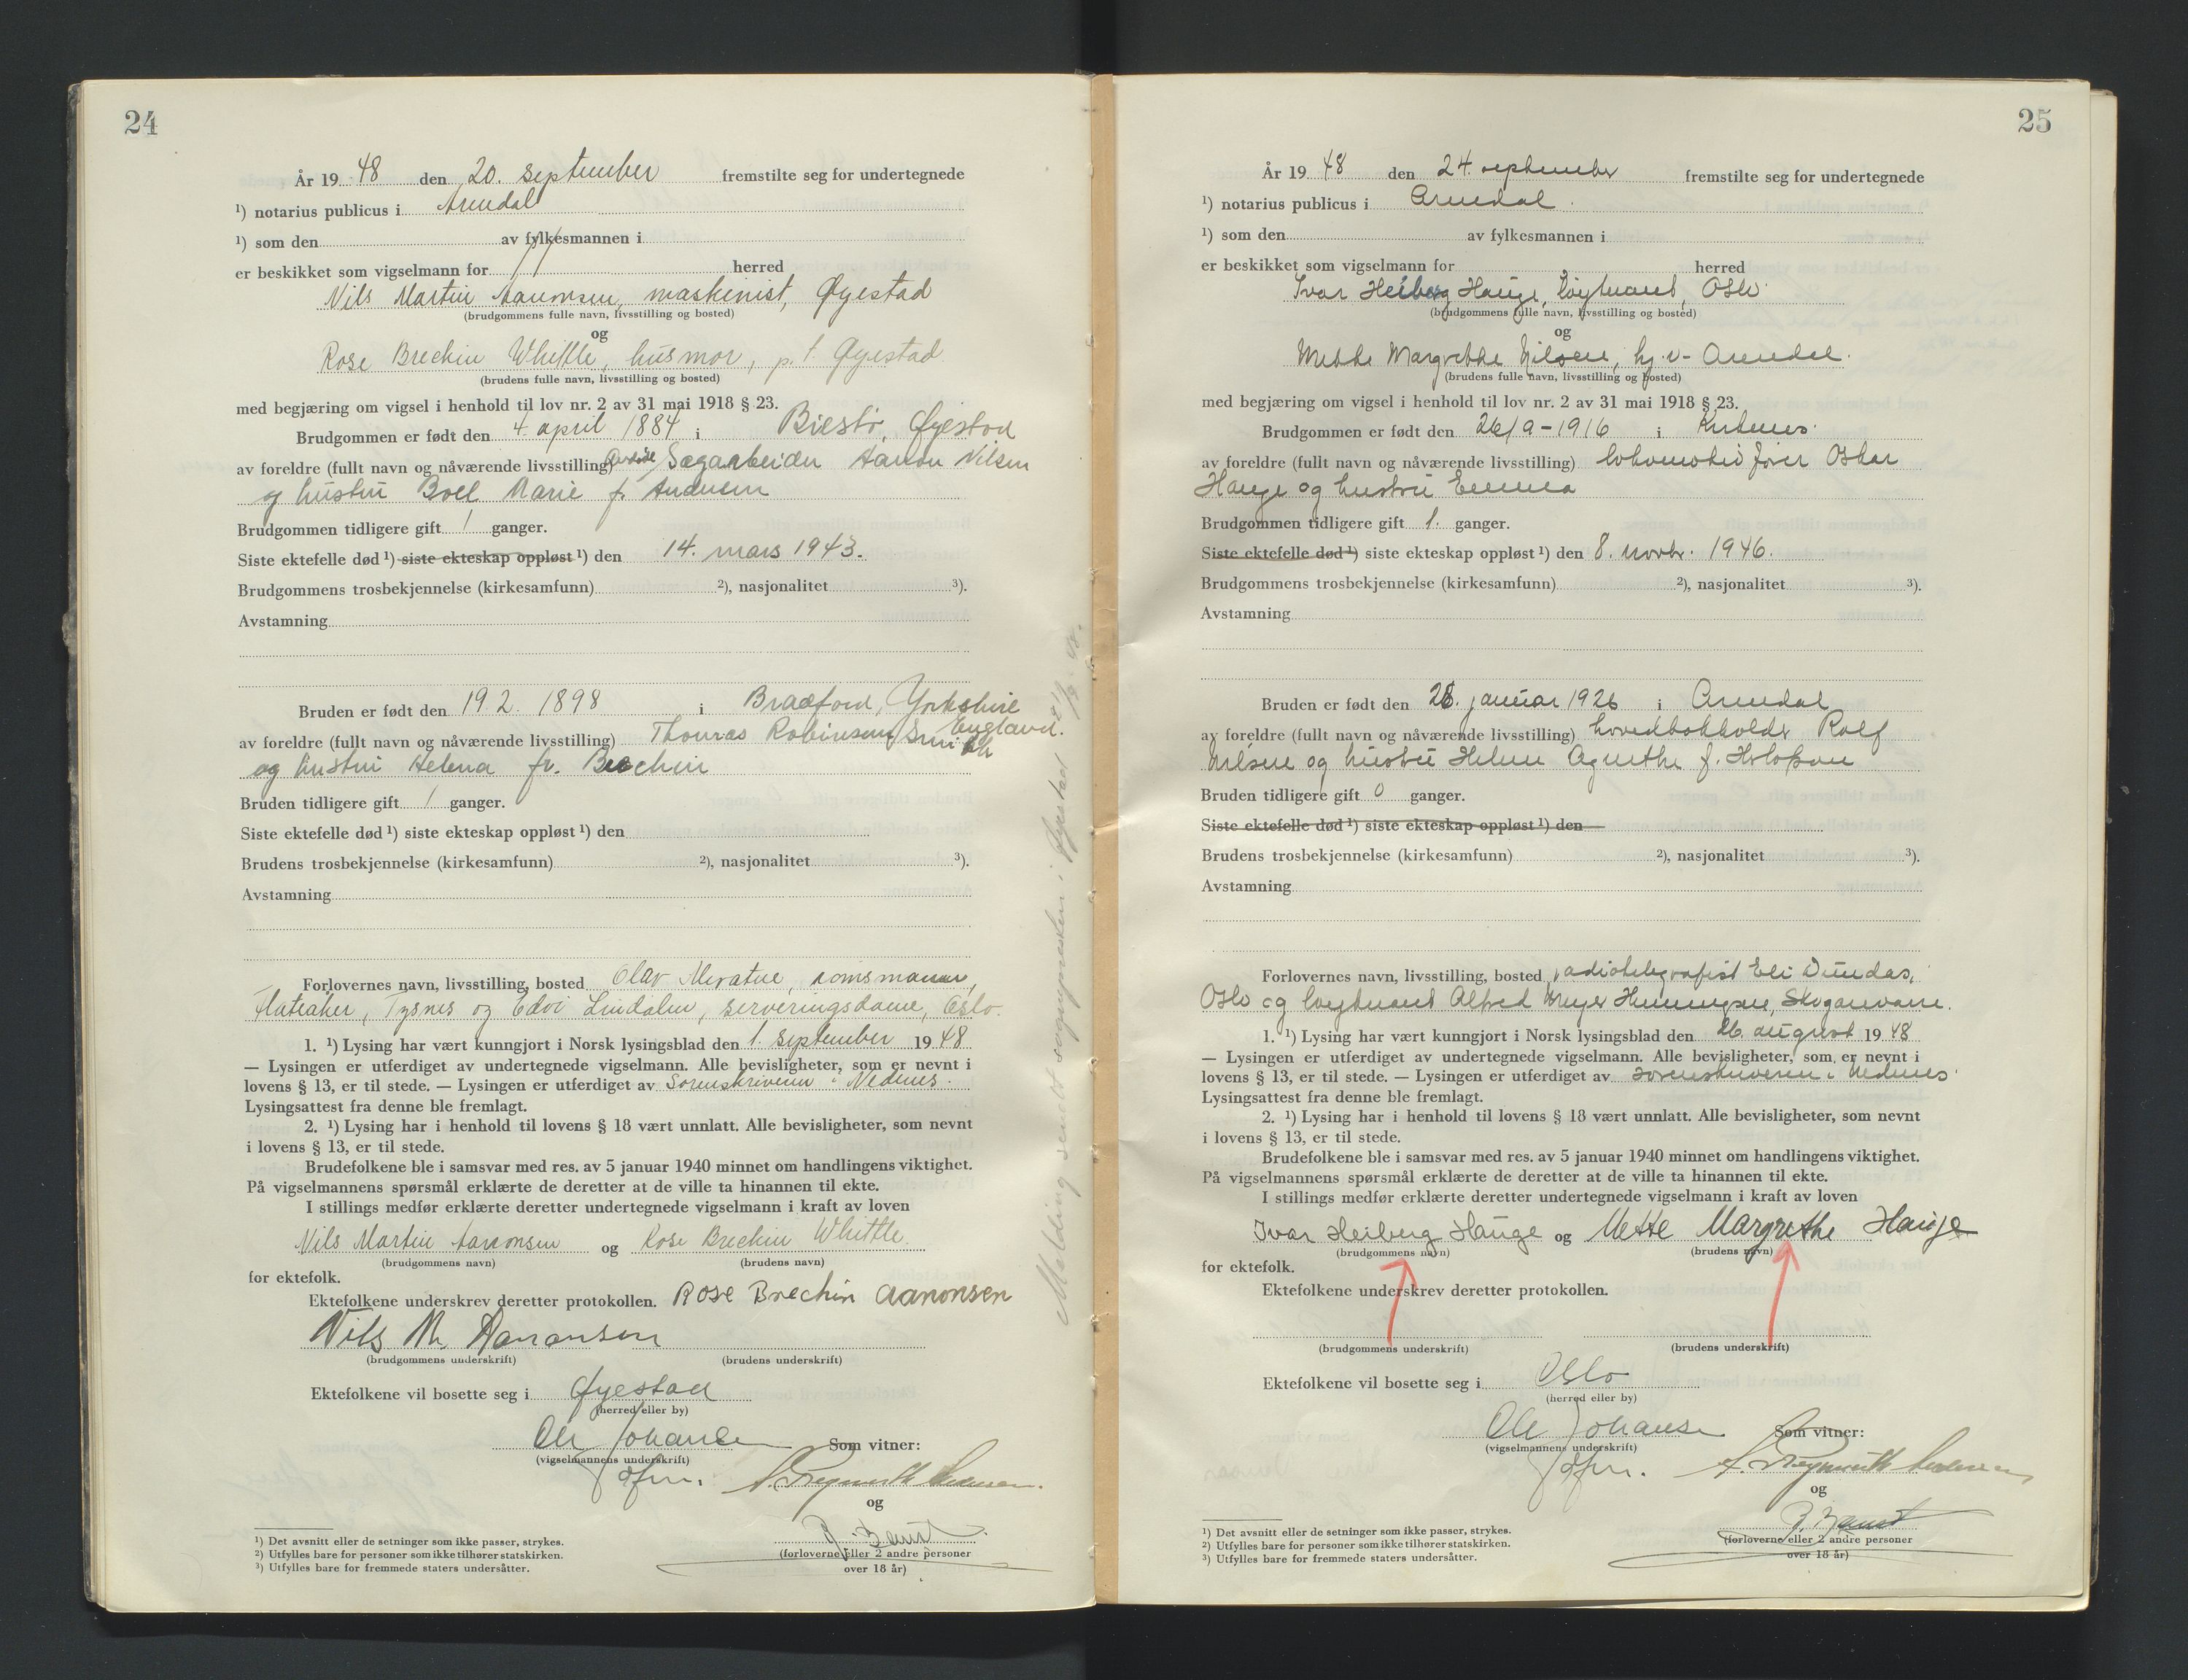 24
År 19 48 den 20. september fremstilte seg for undertegnede
¹) notarius publicus i Arendal
¹) som den av fylkesmannen i
er beskikket som vigselmann for herred
Nils Martin Aanonsen, maskinist, Øyestad
(brudgommens fulle navn, livsstilling og bosted)
og
Rose Brechin Whittle, husmor, p.t. Øyestad
(brudens fulle navn, livsstilling og bosted)
med begjæring om vigsel i henhold til lov nr. 2 av 31 mai 1918 § 23.
Brudgommen er født den 4. april 1884 i Øyestad
av foreldre (fullt navn og nåværende livsstilling) Sagarbeider Aanon Nilsen
og hustru Boel Marie f. Andersen
Brudgommen tidligere gift 1 ganger.
Siste ektefelle død ¹) siste ekteskap oppløst ¹) den 14. mars 1943.
Brudgommens trosbekjennelse (kirkesamfunn) ²), nasjonalitet ³).
Avstamning
Bruden er født den 19.2. 1898 i Bradford, Yorkshire
England.
av foreldre (fullt navn og nåværende livsstilling) Thomas Robinson Smith
og hustru Helena f. Brechin
Bruden tidligere gift 1 ganger.
Siste ektefelle død ¹) siste ekteskap oppløst ¹) den
Brudens trosbekjennelse (kirkesamfunn) ²), nasjonalitet ³).
Avstamning
Forlovernes navn, livsstilling, bosted Olav
Flateaker, Tysnes og Edvi Lindalen, serveringsdame, Oslo.
1. ¹) Lysing har vært kunngjort i Norsk lysingsblad den 1. september 19 48
— Lysingen er utferdiget av undertegnede vigselmann. Alle bevisligheter, som er nevnt i
lovens § 13, er til stede. — Lysingen er utferdiget av Sorenskriveren i Nedenes.
Lysingsattest fra denne ble fremlagt.
2. ¹) Lysing har i henhold til lovens § 18 vært unnlatt. Alle bevisligheter, som nevnt
i lovens § 13, er til stede.
Brudefolkene ble i samsvar med res. av 5 januar 1940 minnet om handlingens viktighet.
På vigselmannens spørsmål erklærte de deretter at de ville ta hinannen til ekte.
I stillings medfør erklærte deretter undertegnede vigselmann i kraft av loven
Nils Martin Aanonsen og Rose Brechin Whittle.
(brudgommens navn) (brudens navn)
for ektefolk.
Ektefolkene underskrev deretter protokollen. Rose Brechin Aanonsen
Nils M. Aanonsen
(brudgommens underskrift) (brudens underskrift)
Ektefolkene vil bosette seg i Øyestad
(herred eller by)
Ole Johansen Som vitner:
(vigselmannens underskrift)
og
(forloverne eller 2 andre personer
over 18 år)
¹) Det avsnitt eller de setninger som ikke passer, strykes.
²) Utfylles bare for personer som ikke tilhører statskirken.
³) Utfylles bare for fremmede staters undersåtter.
Melding sendt sognepresten i Øyestad
25
År 19 48 den 24. september fremstilte seg for undertegnede
¹) notarius publicus i Arendal.
¹) som den av fylkesmannen i
er beskikket som vigselmann for herred
Ivar Heiberg Hauge, løytnant, Oslo.
(brudgommens fulle navn, livsstilling og bosted)
og
Mette Margrethe Nilsen, hj.v- Arendal.
(brudens fulle navn, livsstilling og bosted)
med begjæring om vigsel i henhold til lov nr. 2 av 31 mai 1918 § 23.
Brudgommen er født den 26/9-1916 i
av foreldre (fullt navn og nåværende livsstilling) lokomotivfører Oskar
Hauge og hustru Emma
Brudgommen tidligere gift 1. ganger.
Siste ektefelle død ¹) siste ekteskap oppløst ¹) den 8. novbr. 1946.
Brudgommens trosbekjennelse (kirkesamfunn) ²), nasjonalitet ³).
Avstamning
Bruden er født den 28. januar 1926 i Arendal
av foreldre (fullt navn og nåværende livsstilling) hovedbokholder Rolf
Nilsen og hustru Helene Agnethe f.
Bruden tidligere gift 0 ganger.
Siste ektefelle død ¹) siste ekteskap oppløst ¹) den
Brudens trosbekjennelse (kirkesamfunn) ²), nasjonalitet ³).
Avstamning
Forlovernes navn, livsstilling, bosted radiotelegrafist Eli Dundas,
Oslo og løytnant Alfred Meyer Henningsen, Skoganvarre.
1. ¹) Lysing har vært kunngjort i Norsk lysingsblad den 26. august 19 48
— Lysingen er utferdiget av undertegnede vigselmann. Alle bevisligheter, som er nevnt i
lovens § 13, er til stede. — Lysingen er utferdiget av sorenskriveren i Nedenes
Lysingsattest fra denne ble fremlagt.
2. ¹) Lysing har i henhold til lovens § 18 vært unnlatt. Alle bevisligheter, som nevnt
i lovens § 13, er til stede.
Brudefolkene ble i samsvar med res. av 5 januar 1940 minnet om handlingens viktighet.
På vigselmannens spørsmål erklærte de deretter at de ville ta hinannen til ekte.
I stillings medfør erklærte deretter undertegnede vigselmann i kraft av loven
Ivar Heiberg Hauge og Mette Margrethe Hauge
(brudgommens navn) (brudens navn)
for ektefolk.
Ektefolkene underskrev deretter protokollen.
(brudgommens underskrift) (brudens underskrift)
Ektefolkene vil bosette seg i Oslo
(herred eller by)
Ole Johansen Som vitner:
(vigselmannens underskrift)
og
(forloverne eller 2 andre personer
over 18 år)
¹) Det avsnitt eller de setninger som ikke passer, strykes.
²) Utfylles bare for personer som ikke tilhører statskirken.
³) Utfylles bare for fremmede staters undersåtter.